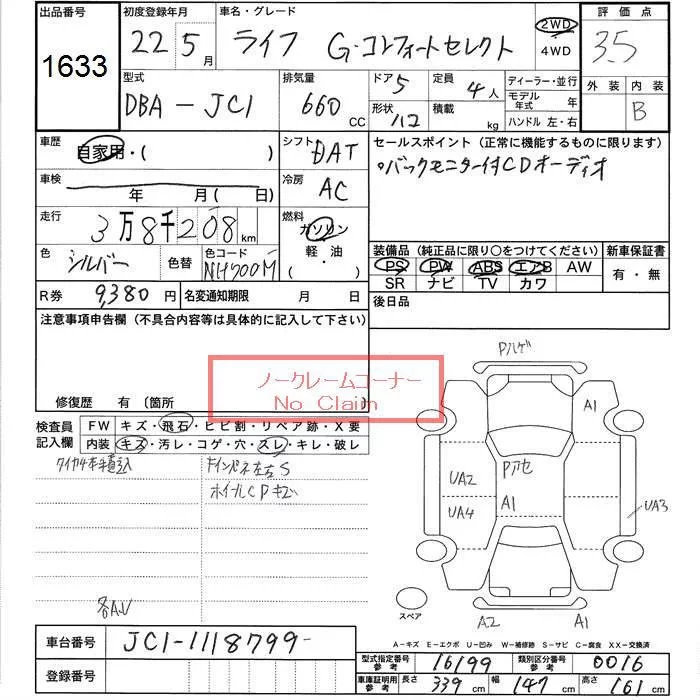 出品番号 初度登録年月 車名・グレード 評価点
1633 22 5月 ライフ G・コンフォートセレクト 2WD 4WD 3.5
型式 排気量 ドア 5 定員 4人 ディーラー・並行 外装 内装
DBA-JC1 660 CC 形状 積載 kg モデル年式 年 B
ハンドル 左・右
車歴 自家用・( ) シフト DAT セールスポイント(正常に機能するものに限ります)
車検 年 月( 日) 冷房 AC ○バックモニター付CDオーディオ
走行 3万8千208km 燃料 ガソリン
軽・油
・( )
装備品(純正品に限り○をつけてください) 新車保証書
色 シルバー 色替 色コード NH700M PS PW ABS エアB AW 有・無
SR ナビ TV カワ
R券 9,380円 名変通知期限 月 日 後日品
注意事項申告欄(不具合内容等は具体的に記入して下さい)
ノークレームコーナー
No Claim
修復歴 有 〔箇所
検査員 FW キズ・飛石・ヒビ割・リペア跡・X要
記入欄 内装 キズ・汚レ・コゲ・穴・スレ・キレ・破レ
タイヤ4本 ドインパネ左右S
ホイールCPキズ
各A.U
Pハゲ
A1
Pアセ
UA2
A1
UA4
UA3
スペア
A2 A1
A-キズ E-エクボ U-凹み W-補修跡 S-サビ C-腐食 XX-交換済
車台番号 JC1-1118799-
登録番号
型式指定番号 参考 16199 類別区分番号 参考 0016
車庫証明用 参考 長さ 339cm 幅 147cm 高さ 161cm